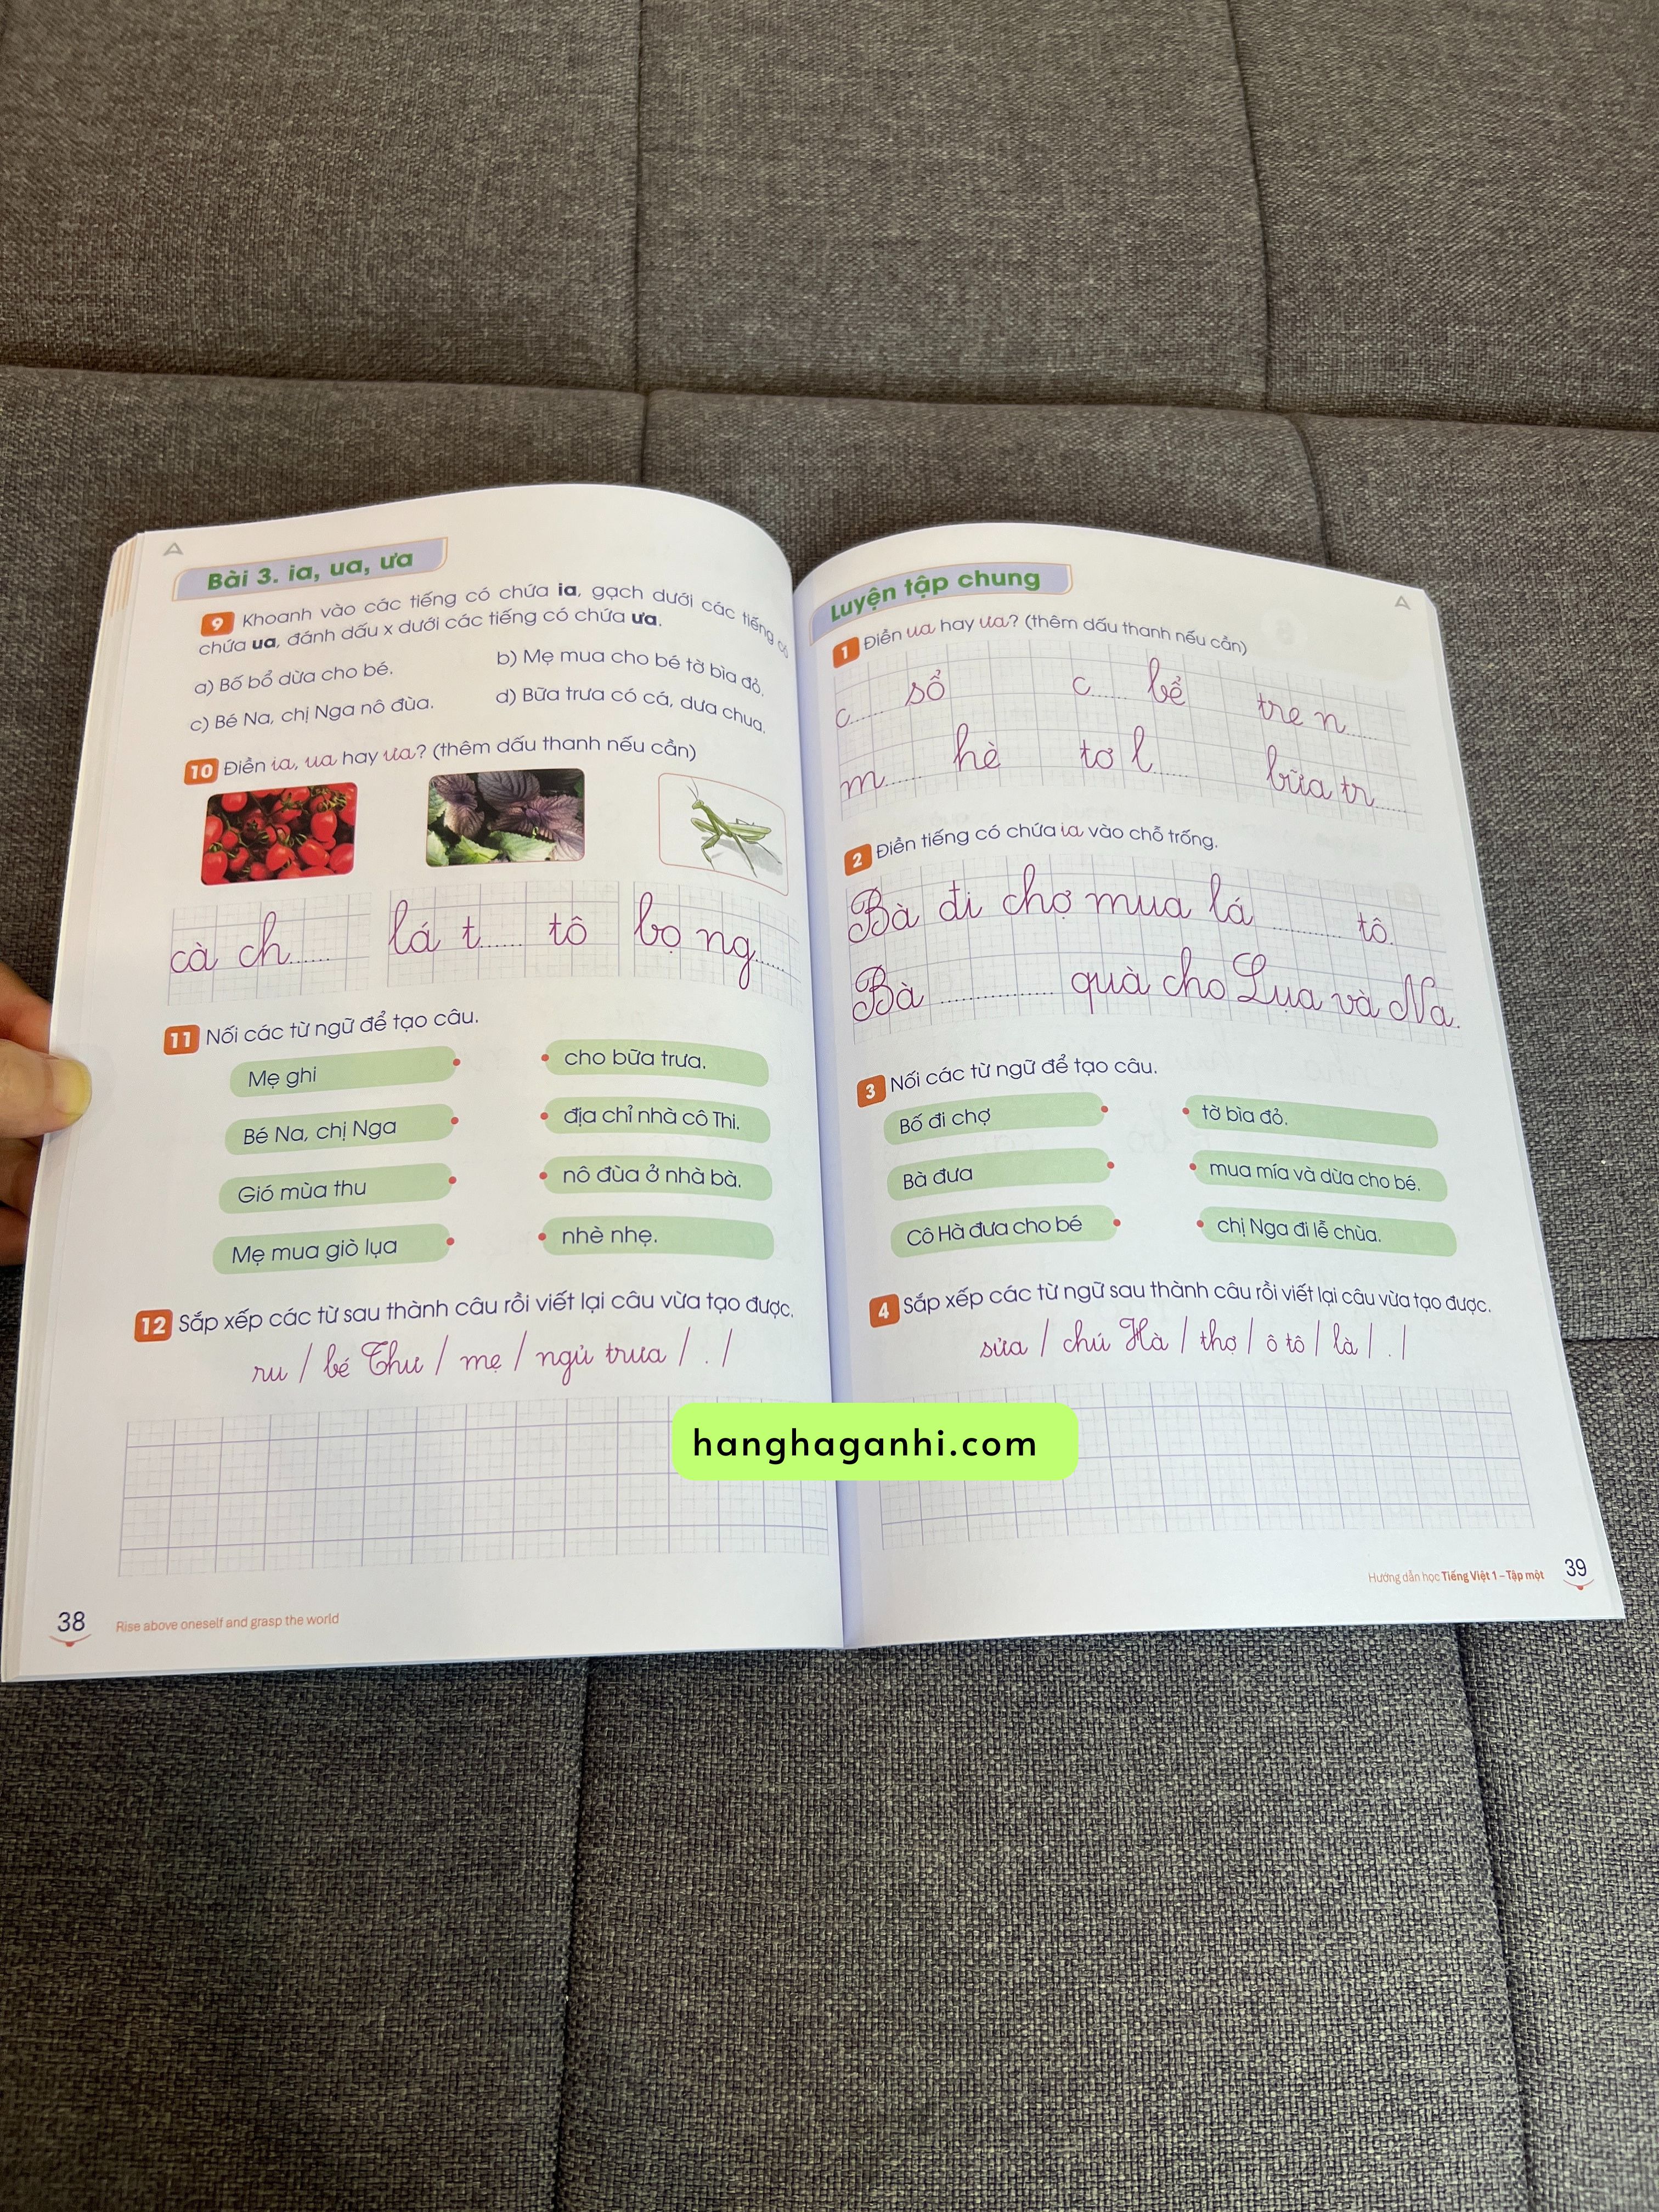 Bài 3. ia, ua, ưa
9 Khoanh vào các tiếng có chứa ia, gạch dưới các tiếng có
chứa ua, đánh dấu x dưới các tiếng có chứa ưa.
a) Bố bổ dừa cho bé.
b) Mẹ mua cho bé tờ bìa đỏ.
c) Bé Na, chị Nga nô đùa.
d) Bữa trưa có cá, dưa chua.
10 Điền ia, ua hay ưa? (thêm dấu thanh nếu cần)
cà ch......
lá t...... tô
bọ ng......
11 Nối các từ ngữ để tạo câu.
Mẹ ghi
cho bữa trưa.
Bé Na, chị Nga
địa chỉ nhà cô Thi.
Gió mùa thu
nô đùa ở nhà bà.
Mẹ mua giò lụa
nhè nhẹ.
12 Sắp xếp các từ sau thành câu rồi viết lại câu vừa tạo được.
ru / bé Thư / mẹ / ngủ trưa / . /
38
Rise above oneself and grasp the world
Luyện tập chung
1 Điền ua hay ưa? (thêm dấu thanh nếu cần)
c...... sổ c...... bể tre n......
m...... hè tơ l...... bữa tr......
2 Điền tiếng có chứa ia vào chỗ trống.
Bà đi chợ mua lá ............ tô.
Bà .................. quà cho Lụa và Na.
3 Nối các từ ngữ để tạo câu.
Bố đi chợ
tờ bìa đỏ.
Bà đưa
mua mía và dừa cho bé.
Cô Hà đưa cho bé
chị Nga đi lễ chùa.
4 Sắp xếp các từ ngữ sau thành câu rồi viết lại câu vừa tạo được.
sửa / chú Hà / thợ / ô tô / là / . /
Hướng dẫn học Tiếng Việt 1 – Tập một
39
hanghaganhi.com